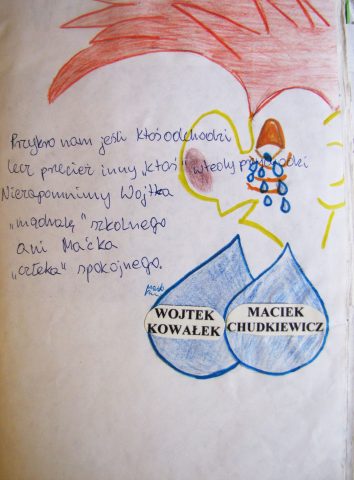 Przykro nam jeśli ktoś odchodzi
lecz przecież inny ktoś wtedy przychodzi
Niezapomnimy Wojtka
„mądralę" szkolnego
ani Maćka
„człeka" spokojnego.
WOJTEK
KOWAŁEK
MACIEK
CHUDKIEWICZ